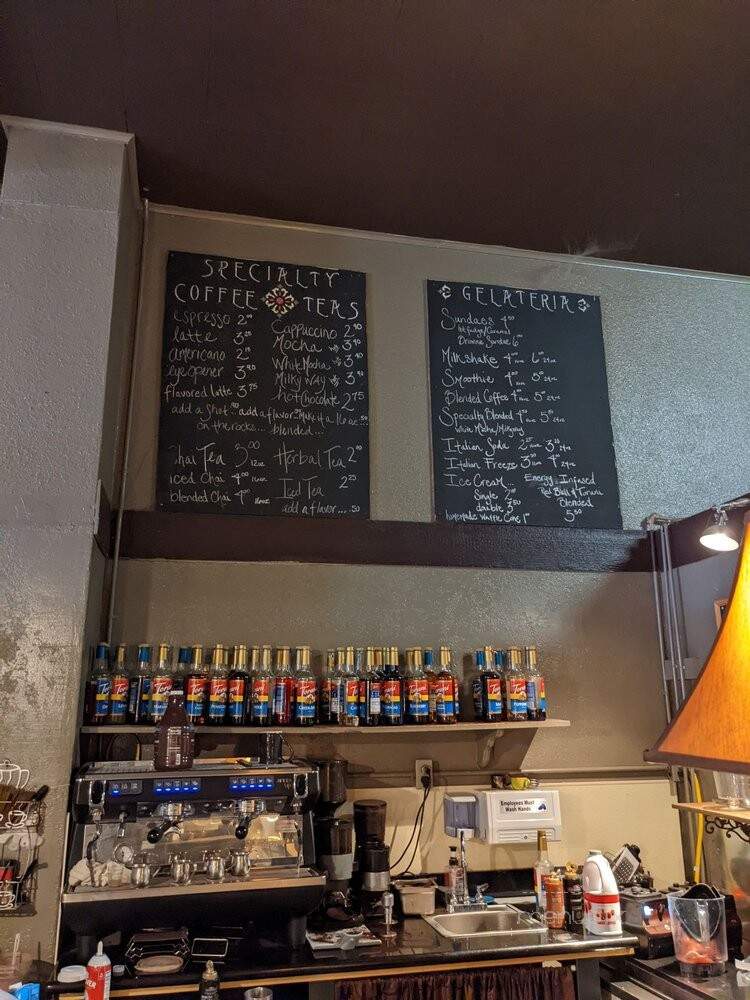 SPECIALTY
COFFEE TEAS
espresso 2
latte 3 25
americano 2
eye opener 3
flavored latte 3 75
add a shot... add a flavor... Make it a 16 oz .50
on the rocks... blended...
Cappuccino 2 90
Mocha 3 90
White Mocha 3 90
Milky Way 3 90
hot chocolate 2 75
Chai Tea 3 00 12oz
iced Chai 4 00 16oz
blended Chai 4 16oz
Herbal Tea 2
Iced Tea 2 25
add a flavor... .50
GELATERIA
Sundaes 4 50
hot fudge/Caramel
Brownie Sundae 6
Milkshake 4 6 24oz
Smoothie 4 5 24oz
Blended Coffee 4 5 24oz
Specialty Blended 4 5 24oz
White Mocha/Milkyway
Italian Soda 2 3 24oz
Italian Freeze 3 4 24oz
Ice Cream...
Single 2
double 3 50
homemade Waffle Cone 1
Energy Infused
Red Bull & Torani
Blended
5 50
Torani
Employees Must
Wash Hands